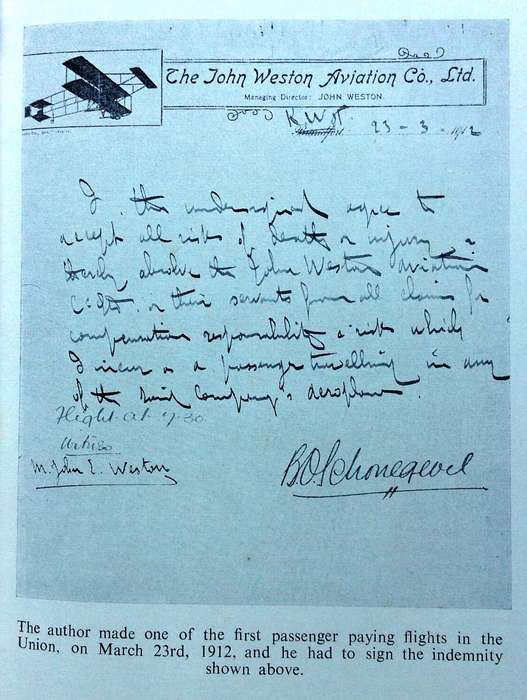 The John Weston Aviation Co., Ltd.
Managing Director: JOHN WESTON.
23 - 3 - 1912
I the undersigned agree to
accept all risk of death or injury &
hereby absolve the John Weston Aviation
Co Ltd. or their servants from all claims for
compensation responsibility or risk which
I incur as a passenger travelling in any
of the said Company's aeroplanes.
Flight at 7-30
M. John E. Weston
B.O. Schonegevel
The author made one of the first passenger paying flights in the
Union, on March 23rd, 1912, and he had to sign the indemnity
shown above.